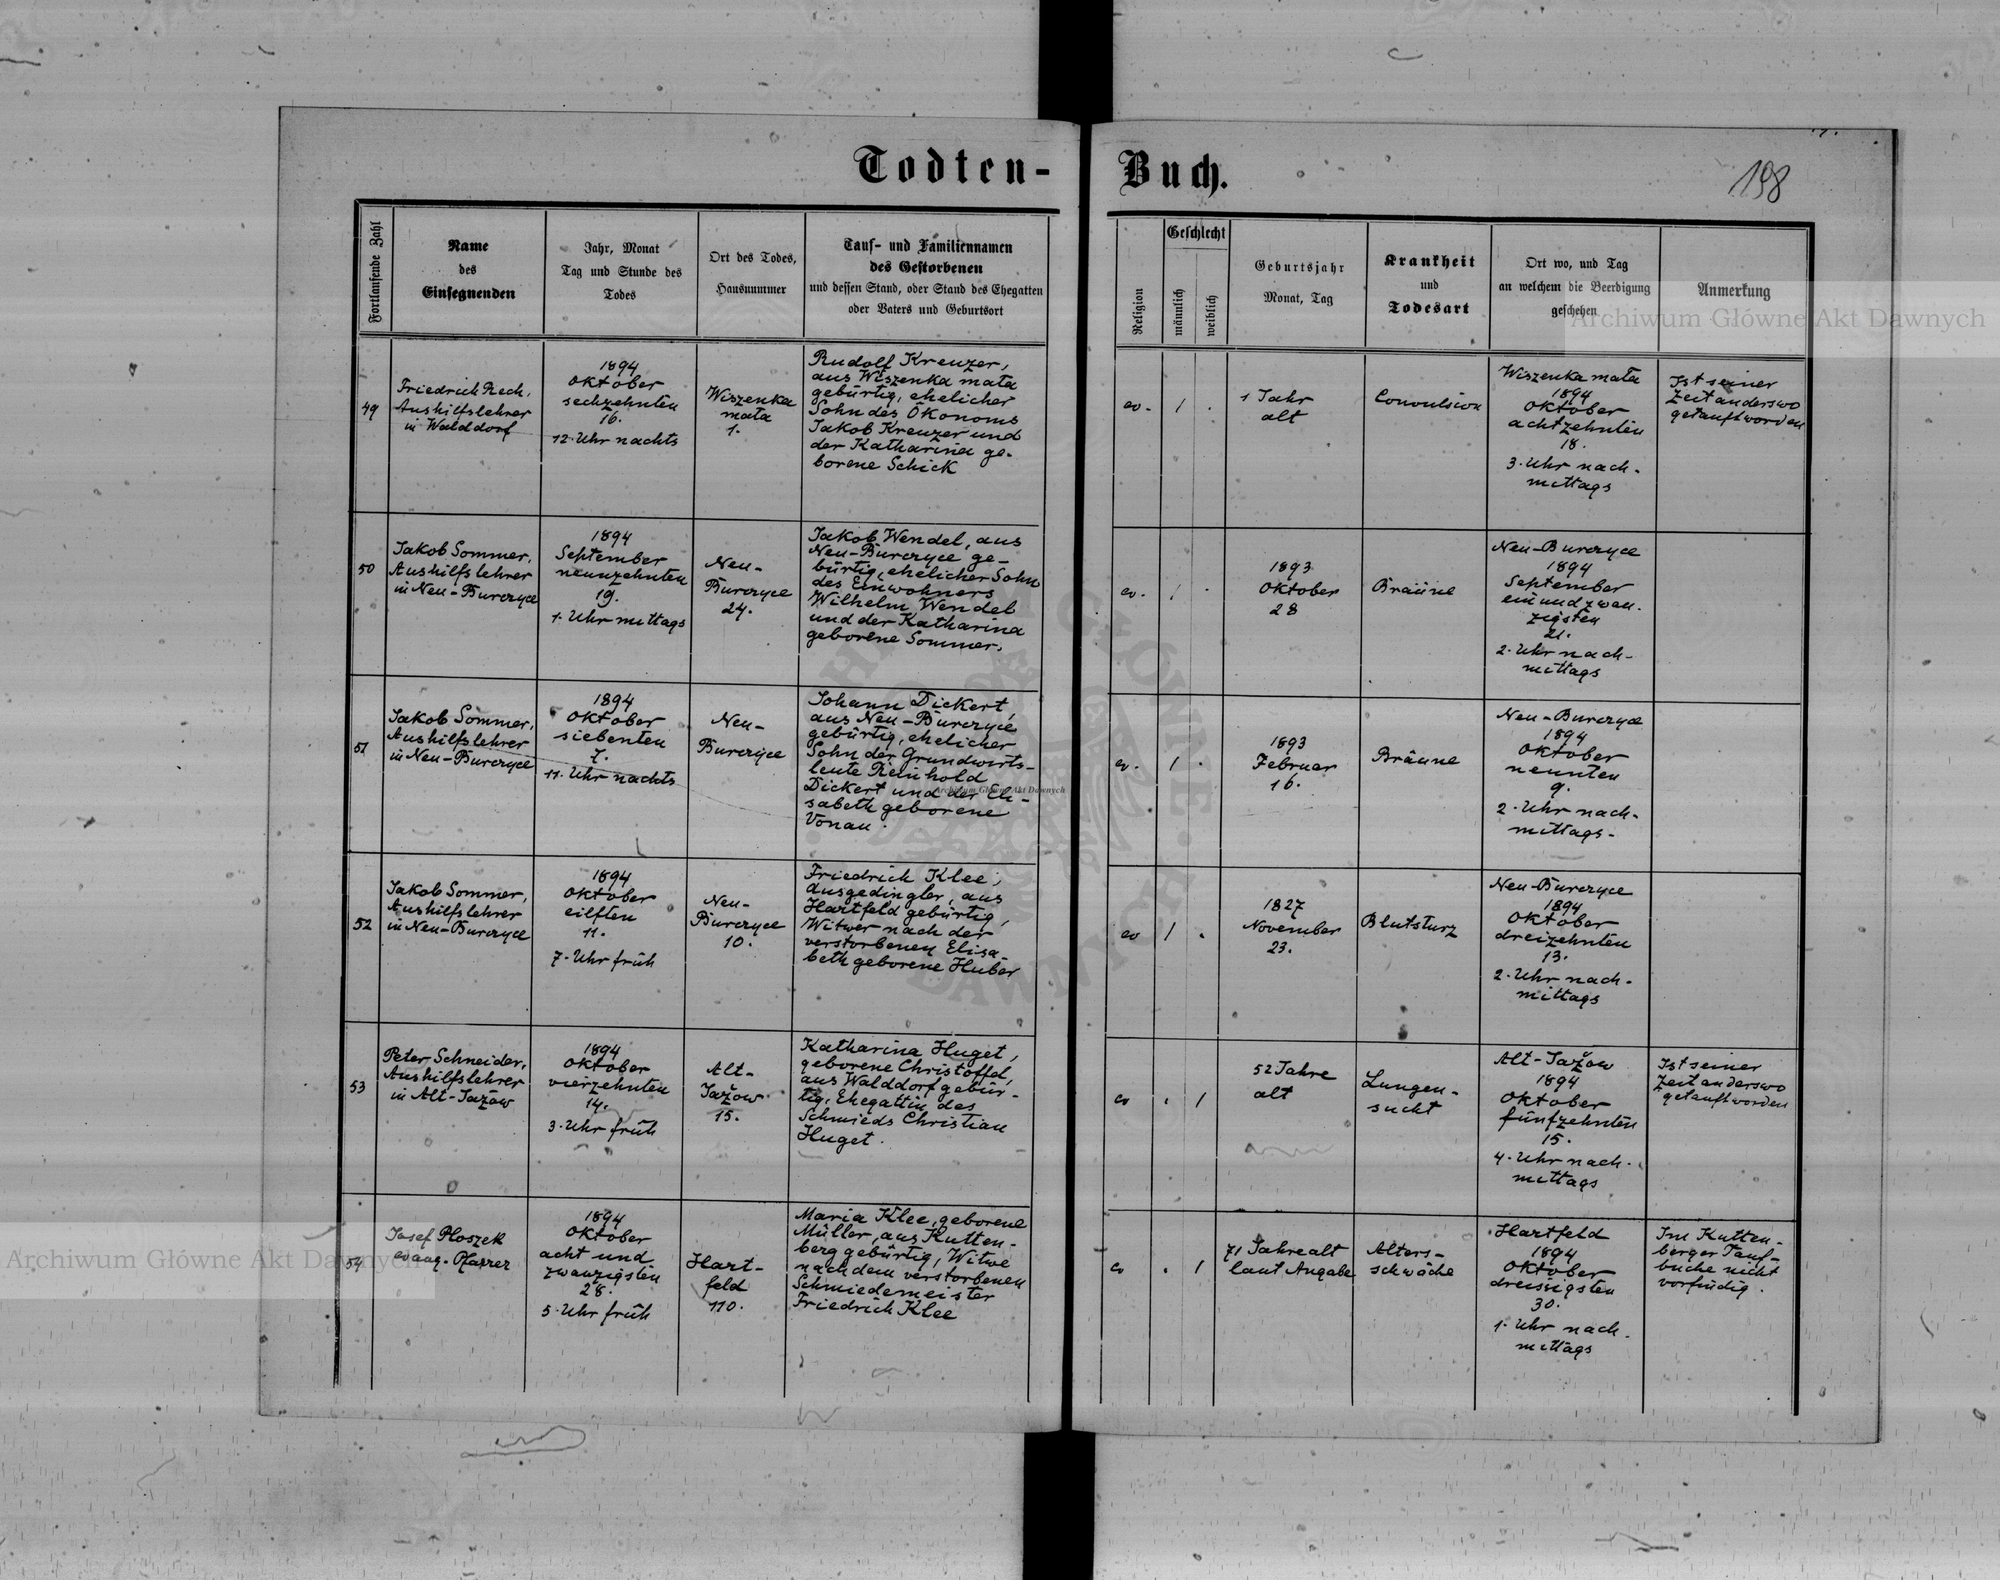 Todten-Buch.
198
Fortlaufende Zahl
Name
des
Einsegnenden
Jahr, Monat
Tag und Stunde des
Todes
Ort des Todes,
Hausnummer
Tauf- und Familiennamen
des Gestorbenen
und dessen Stand, oder Stand des Ehegatten
oder Vaters und Geburtsort
Religion
Geschlecht
männlich
weiblich
Geburtsjahr
Monat, Tag
Krankheit
und
Todesart
Ort wo, und Tag
an welchem die Beerdigung
geschehen
Anmerkung
49
Friedrich Rech,
Aushilfslehrer
in Walddorf
1894
Oktober
sechzehnten
16.
12. Uhr nachts
Wiszenka
mała
1.
Rudolf Kreuzer,
aus Wiszenka mała
gebürtig, ehelicher
Sohn des Ökonoms
Jakob Kreuzer und
der Katharina ge-
borene Schick
ev.
1
.
1 Jahr
alt
Convulsion
Wiszenka mała
1894
Oktober
achtzehnten
18.
3. Uhr nach-
mittags
Ist seiner
Zeit anderswo
getauft worden
50
Jakob Sommer,
Aushilfslehrer
in Neu-Burczyce
1894
September
neunzehnten
19.
1. Uhr mittags
Neu-
Burczyce
24.
Jakob Wendel, aus
Neu-Burczyce ge-
bürtig, ehelicher Sohn
des Einwohners
Wilhelm Wendel
und der Katharina
geborene Sommer.
ev.
1
.
1893
Oktober
28
Bräune
Neu-Burczyce
1894
September
einundzwan-
zigsten
21.
2. Uhr nach-
mittags
51
Jakob Sommer,
Aushilfslehrer
in Neu-Burczyce
1894
Oktober
siebenten
7.
11. Uhr nachts
Neu-
Burczyce
Johann Dickert
aus Neu-Burczyce
gebürtig, ehelicher
Sohn der Grundwirts-
leute Reinhold
Dickert und der Eli-
sabeth geborene
Vonau.
ev.
1
.
1893
Februar
16.
Bräune
Neu-Burczyce
1894
Oktober
neunten
9.
2. Uhr nach-
mittags.
52
Jakob Sommer,
Aushilfslehrer
in Neu-Burczyce
1894
Oktober
eilften
11.
7. Uhr früh
Neu-
Burczyce
10.
Friedrich Klee,
Ausgedingler, aus
Hartfeld gebürtig,
Witwer nach der
verstorbenen Elisa-
beth geborene Huber
ev
1
.
1827
November
23.
Blutsturz
Neu-Burczyce
1894
Oktober
dreizehnten
13.
2. Uhr nach-
mittags
53
Peter Schneider,
Aushilfslehrer
in Alt-Jażow
1894
Oktober
vierzehnten
14.
3. Uhr früh
Alt-
Jażow
15.
Katharina Huget,
geborene Christoffel,
aus Walddorf gebür-
tig, Ehegattin des
Schmieds Christian
Huget.
ev
.
1
52 Jahre
alt
Lungen-
sucht
Alt-Jażow
1894
Oktober
fünfzehnten
15.
4. Uhr nach-
mittags
Ist seiner
Zeit anderswo
getauft worden
54
Josef Ploszek
evang. Pfarrer
1894
Oktober
acht und
zwanzigsten
28.
5. Uhr früh
Hart-
feld
110.
Maria Klee, geborene
Müller, aus Kutten-
berg gebürtig, Witwe
nach dem verstorbenen
Schmiedemeister
Friedrich Klee
ev
.
1
71 Jahre alt
laut Angabe
Alters-
schwäche
Hartfeld
1894
Oktober
dreissigsten
30.
1. Uhr nach-
mittags
Im Kutten-
berger Tauf-
buche nicht
vorfindig.
Archiwum Główne Akt Dawnych
Archiwum Główne Akt Dawnych
Archiwum Główne Akt Dawnych